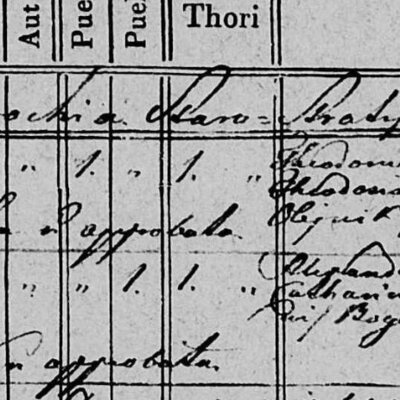 Aut Pue Puel Thori
ochia Staro=Straty
" 1. " 1. " Theodoru
Theodora
approbata. Olijnik
" " 1. 1. " Alexand
Catharin
approbata.